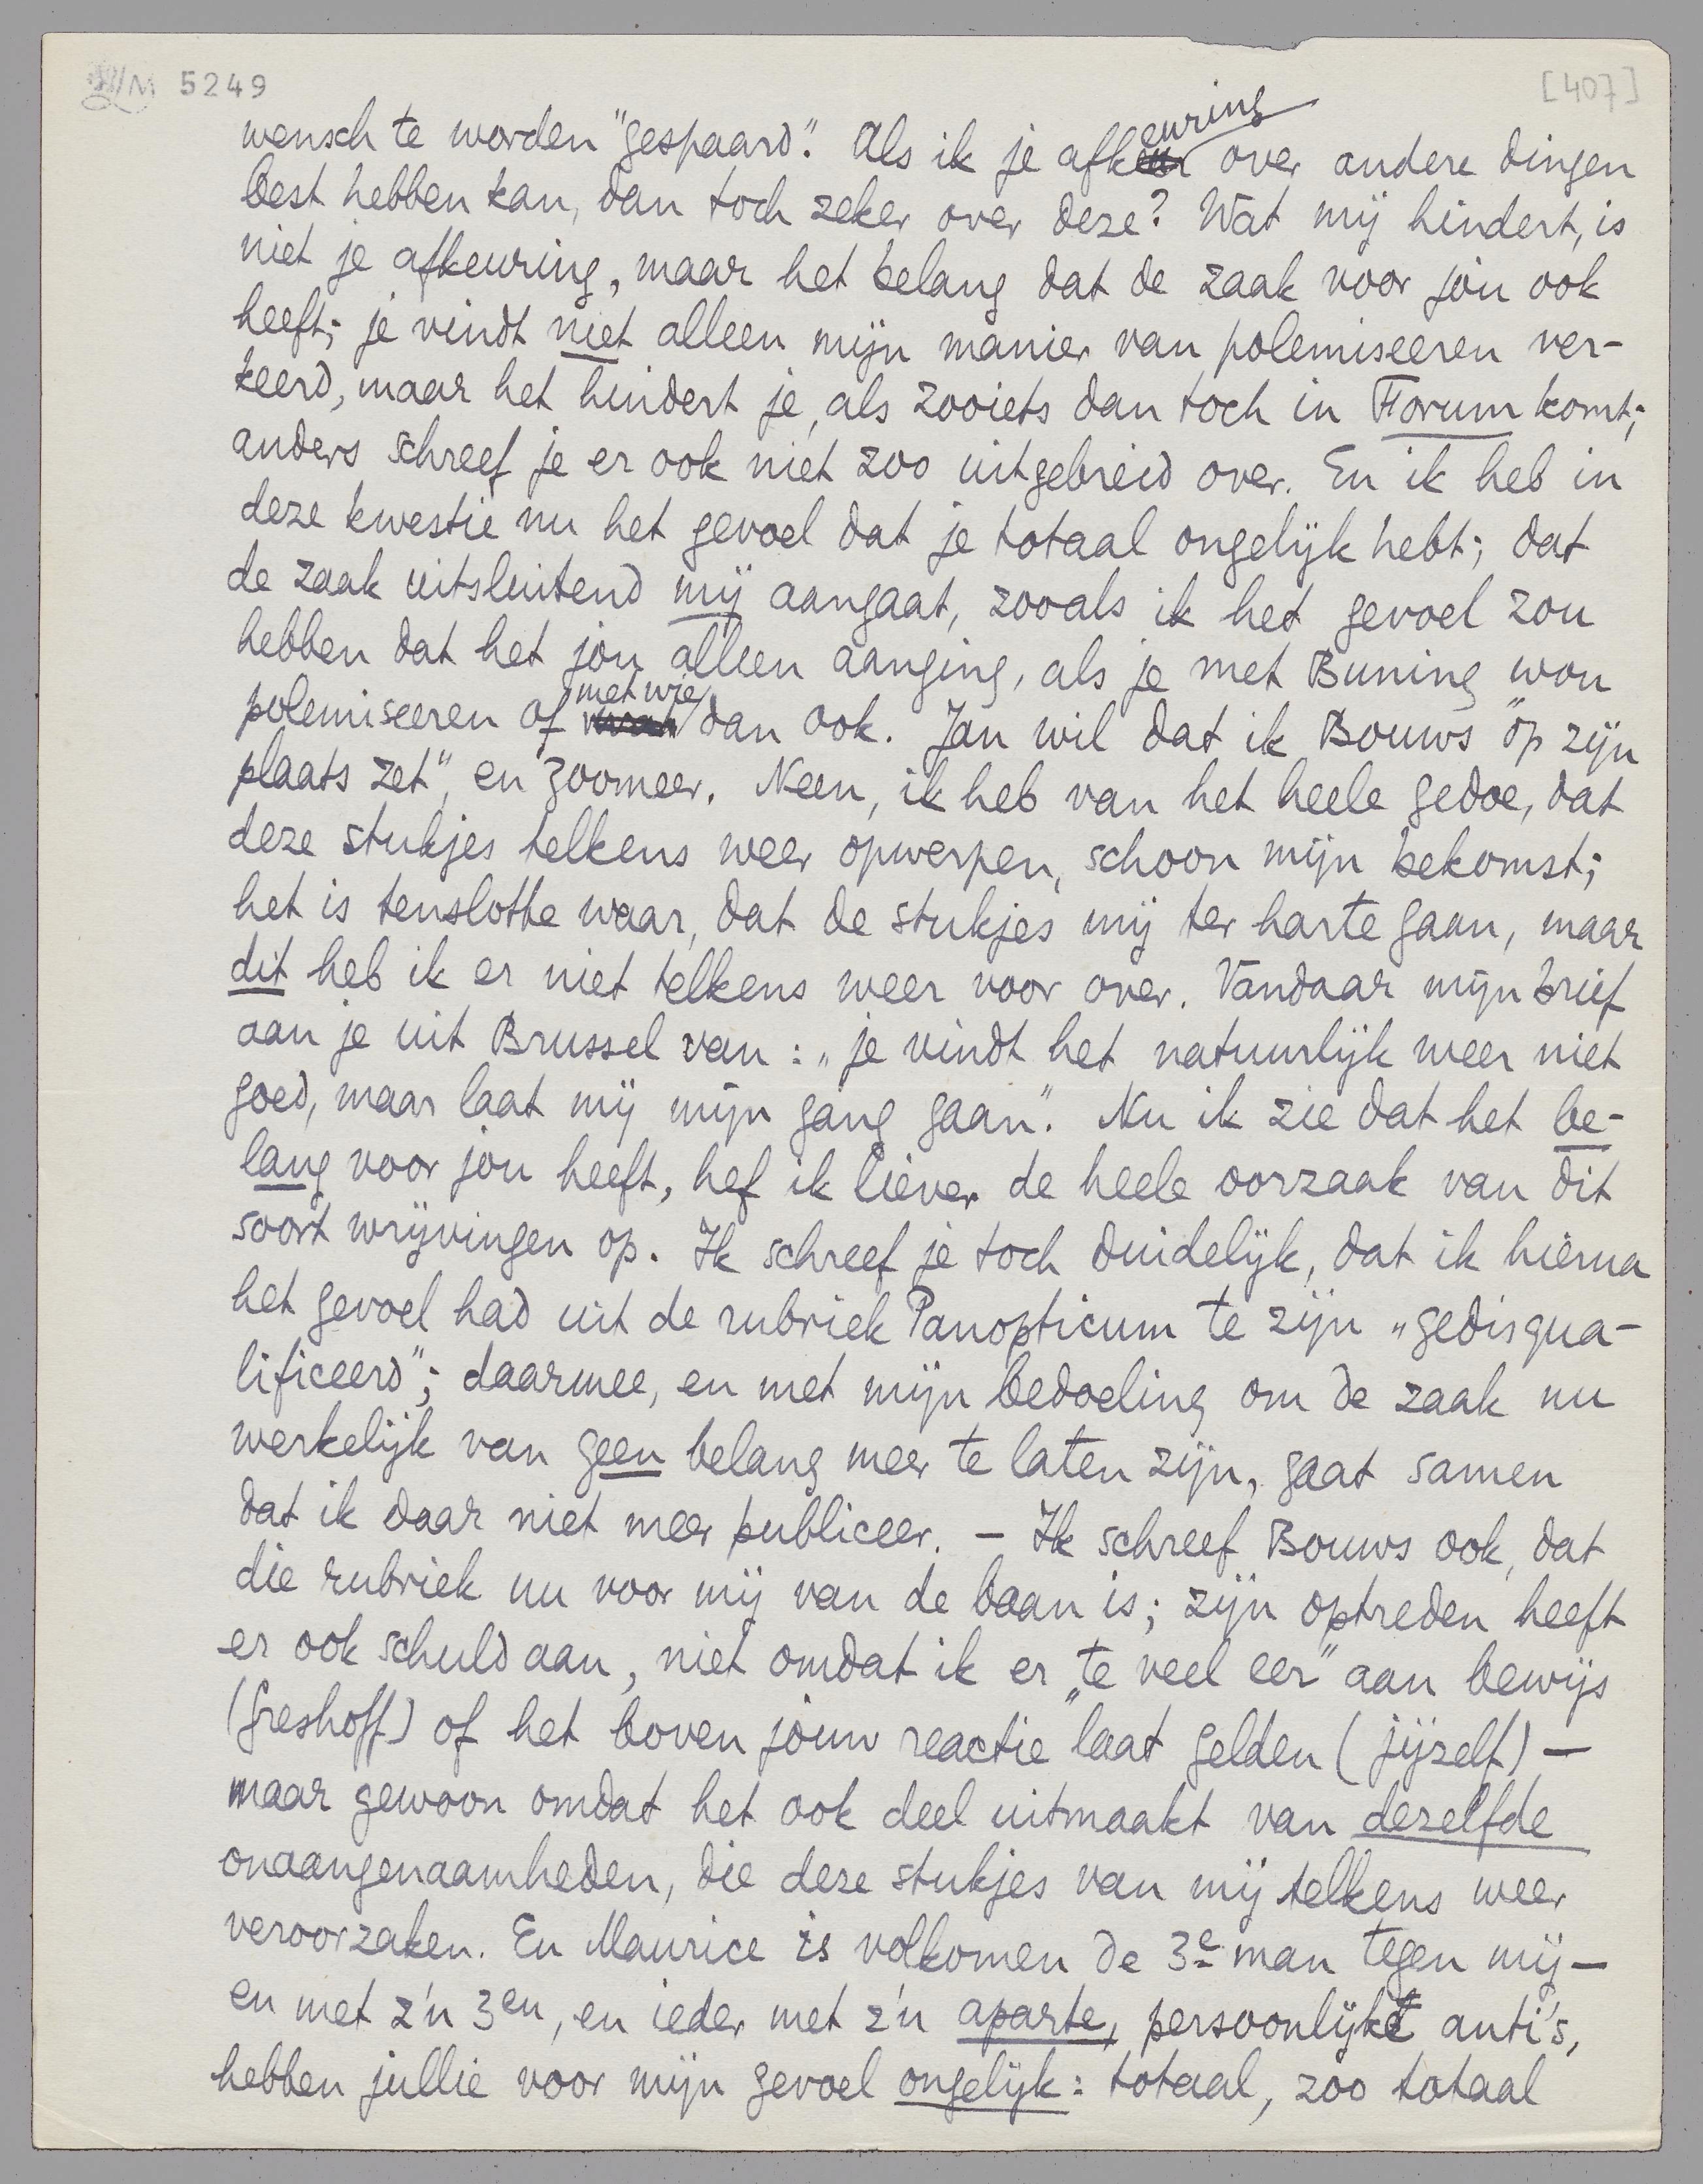 LM 5249
[407]
wensch te worden "gespaard". Als ik je afkeuring over andere dingen
best hebben kan, dan toch zeker over deze? Wat mij hindert, is
niet je afkeuring, maar het belang dat de zaak voor jòu ook
heeft; je vindt niet alleen mijn manier van polemiseeren ver-
keerd, maar het hindert je, als zooiets dan toch in Forum komt;
anders schreef je er ook niet zoo uitgebreid over. En ik heb in
deze kwestie nu het gevoel dat je totaal ongelijk hebt; dat
de zaak uitsluitend mij aangaat, zooals ik het gevoel zou
hebben dat het jòu alleen aanging, als je met Buning wou
polemiseeren of met wie dan ook. Jan wil dat ik Bouws "op zijn
plaats zet", en zoomeer. Neen, ik heb van het heele gedoe, dat
deze stukjes telkens weer opwerpen, schoon mijn bekomst;
het is tenslotte waar, dat de stukjes mij ter harte gaan, maar
dit heb ik er niet telkens weer voor over. Vandaar mijn brief
aan je uit Brussel van: „je vindt het natuurlijk weer niet
goed, maar laat mij mijn gang gaan". Nu ik zie dat het be-
lang voor jou heeft, hef ik liever de heele oorzaak van dit
soort wrijvingen op. Ik schreef je toch duidelijk, dat ik hierna
het gevoel had uit de rubriek Panopticum te zijn „gedisqua-
lificeerd"; daarmee, en met mijn bedoeling om de zaak nu
werkelijk van geen belang meer te laten zijn, gaat samen
dat ik daar niet meer publiceer. — Ik schreef Bouws ook, dat
die rubriek nu voor mij van de baan is; zijn optreden heeft
er ook schuld aan, niet omdat ik er „te veel eer" aan bewijs
(Greshoff) of het boven jòuw reactie „laat gelden (jijzelf) —
maar gewoon omdat het ook deel uitmaakt van dezelfde
onaangenaamheden, die deze stukjes van mij telkens weer
veroorzaken. En Maurice is volkomen de 3e man tegen mij —
en met z'n 3en, en ieder met z'n aparte, persoonlijke anti's,
hebben jullie voor mijn gevoel ongelijk: totaal, zoo totaal